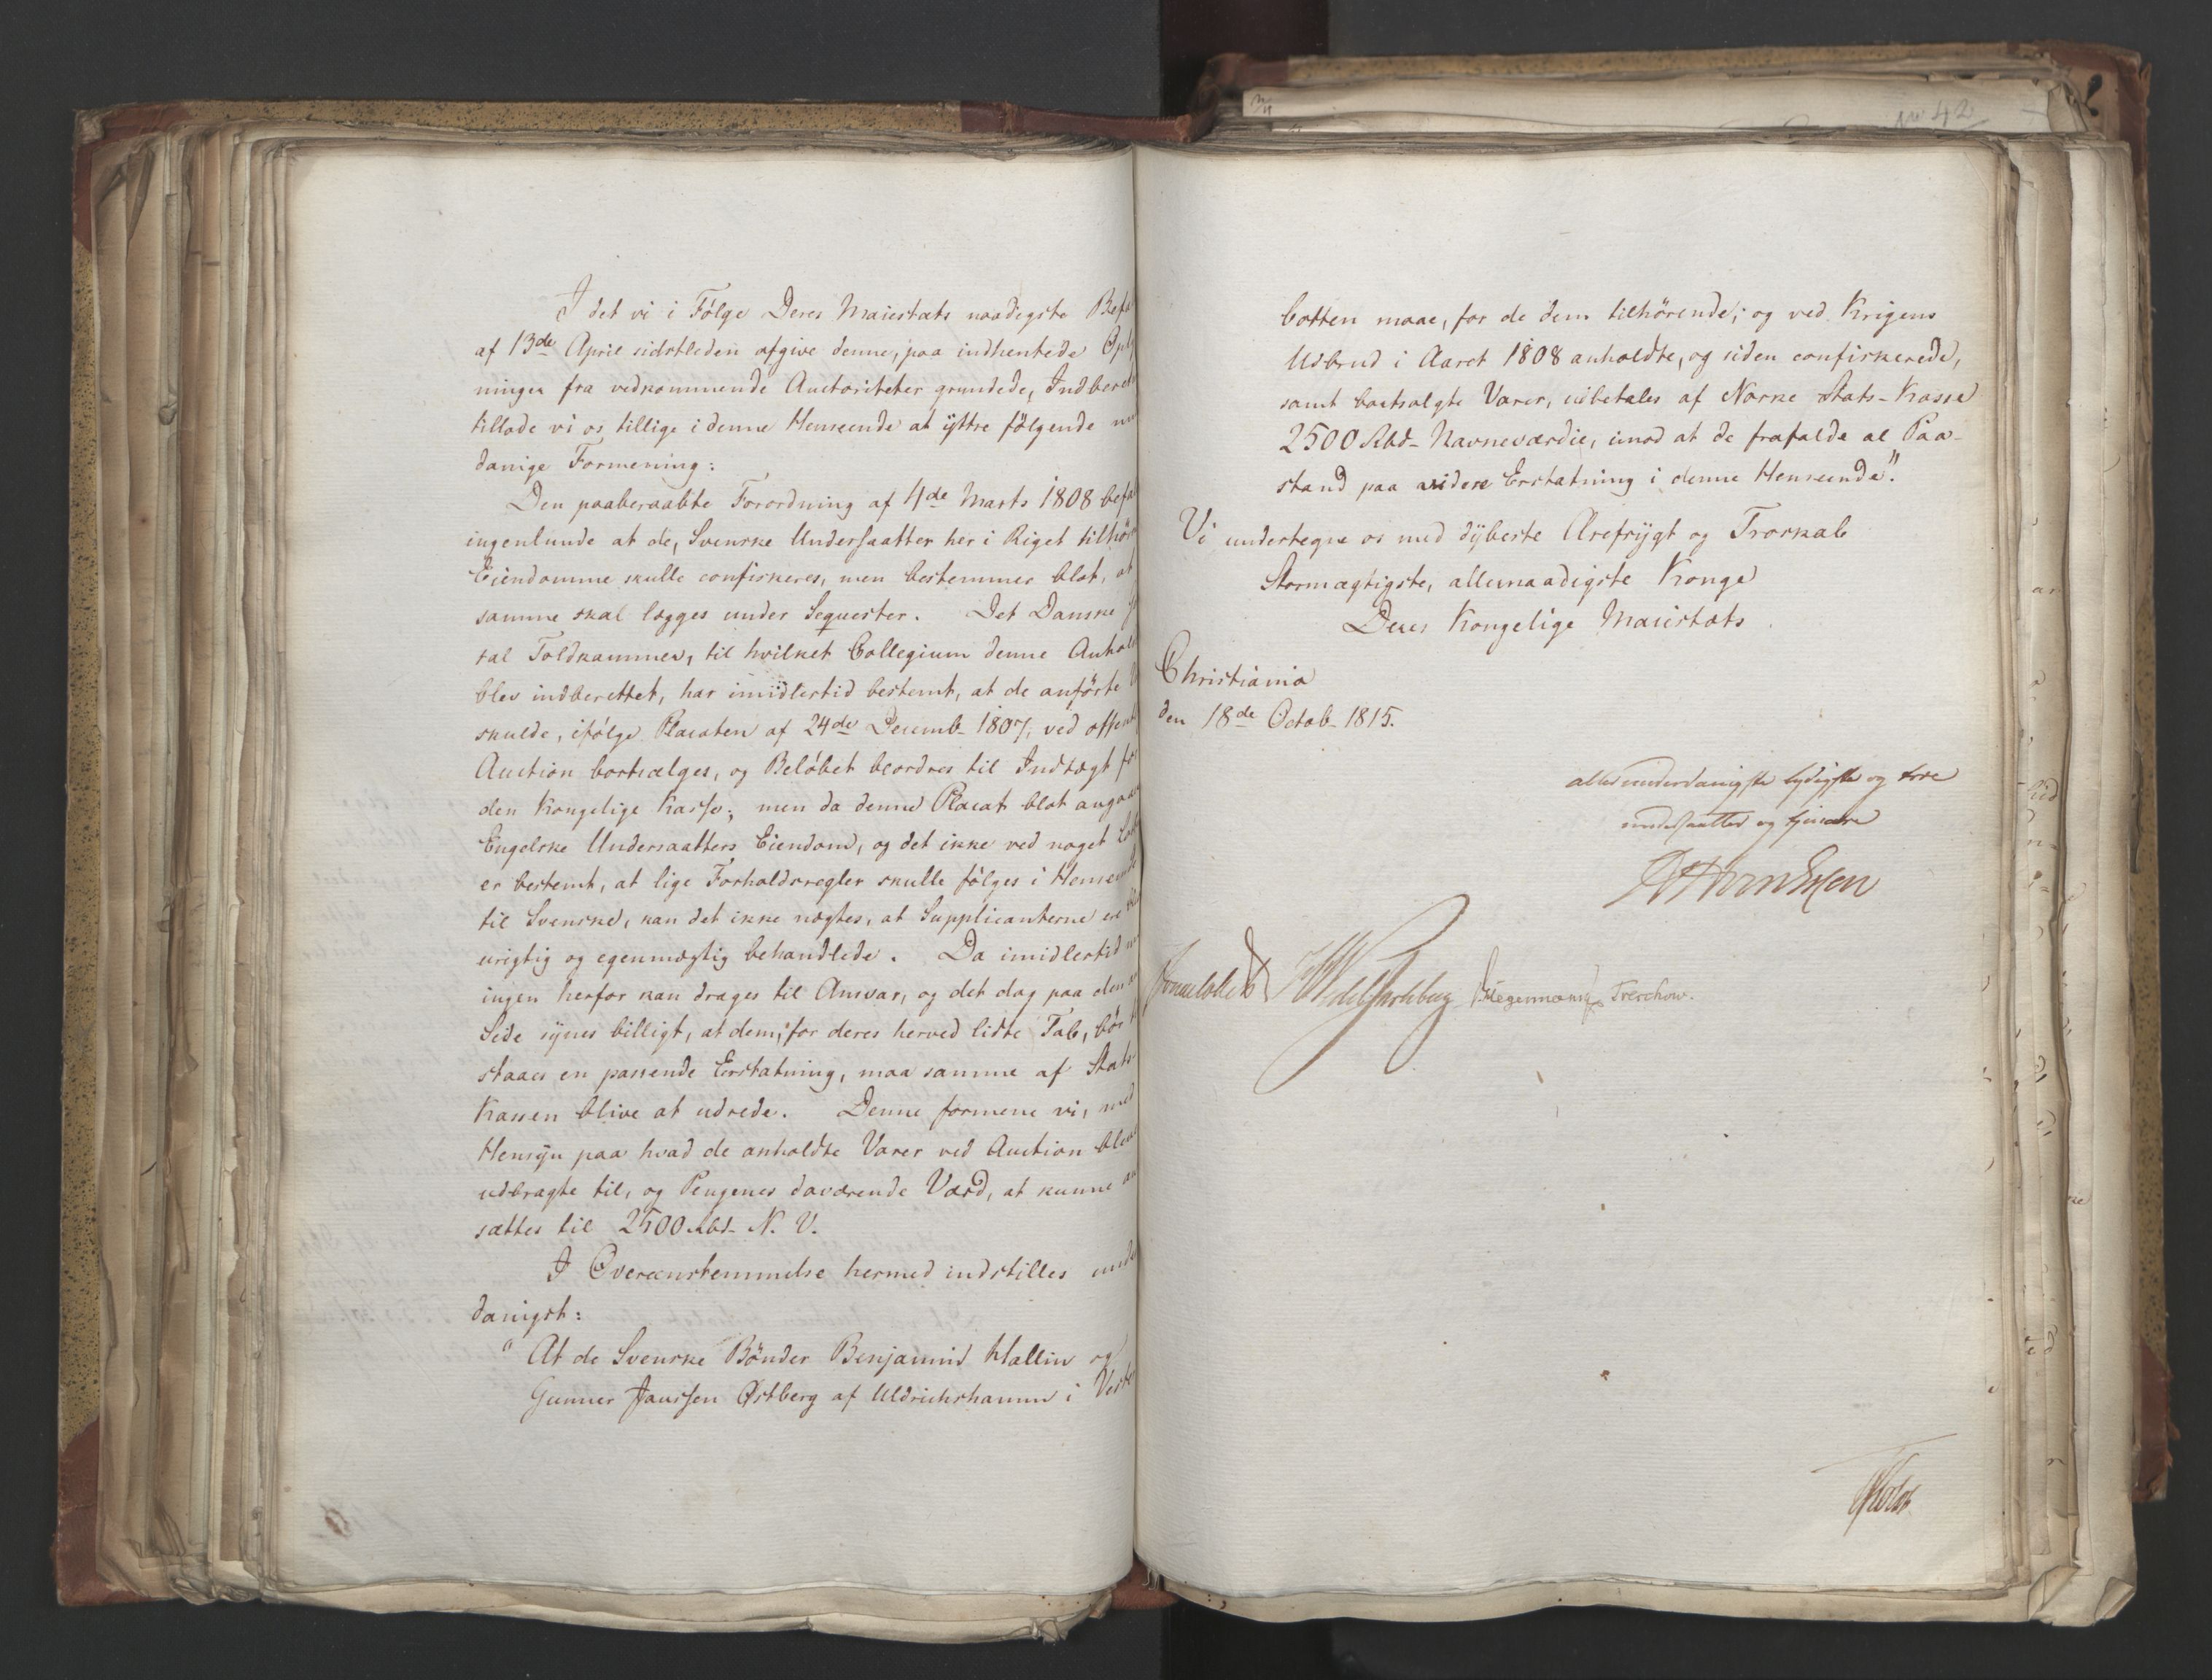 I det vi i Følge Deres Maiestæts naadigste Bef
af 13de April sidstleden afgive denne, paa indhentede Opl
ninger fra vedkommende Auctoriteter grundede, Indberet
tillade vi os tillige i denne Henseende at ÿttre følgende
danige Formening:
Den paaberaabte Forordning af 4de Marts 1808 befal
ingenlunde at de, Svenske Undersaatter her i Riget tilhør
Eiendomme skulle confiskeres, men bestemmer blot, at
samme skal lægges under Sequester. Det Danske
ral Toldkammer, til hvilket Collegium denne Anhol
blev indberettet, har imidlertid bestemt, at de anførte
skulde, ifølge Placaten af 24de Decemb. 1807, ved offent
Auction bortsælges, og Beløbet beordres til Indtægt for
den Kongelige Kasse; men da denne Placat blot angaaer
Engelske Undersaatters Eiendom, og det ikke ved noget
er bestemt, at lige Forholdsregler skulle følges i Henseende
til Svenske, kan det ikke nægtes, at Supplicanterne ere
urigtig og egenmægtig behandlede. Da imidlertid
ingen herfor kan drages til Ansvar, og det dog paa den
Side sÿnes billigt, at dem, for deres herved lidte Tab, bør
staaes en passende Erstatning, maa samme af Stats
Kassen blive at udrede. Denne formene vi, med
Hensÿn paa hvad de anholdte Varer ved Auction bleve
udbragte til, og Pengenes daværende Værd, at kunne an
sættes til 2500 Rbd. N. V.
I Overeenstemmelse hermed indstilles under
danigst:
" At de Svenske Bønder Benjamin Hallin og
Gunner Janssen Østberg af Uldrichshamn i Vester
botten maae, for de dem tilhørende, og ved Krigens
Udbrud i Aaret 1808 anholdte, og siden confiskerede,
samt bortsolgte Varer, udbetales af Norske Stats-Kasse
2500 Rbd. Navneværdie, imod at de frafalde al Paa-
stand paa videre Erstatning i denne Henseende".
Vi undertegne os med dÿbeste Ærefrÿgt og Troeskab
Stormægtigste, allernaadigste Konge
Deres Kongelige Maiestæts
Christiania
den 18de Octob. 1815.
allerunderdanigste lydigste og troe
undersaatter og tjenere
Sommerhielm Hegermann Treschow.
Holst
No 42